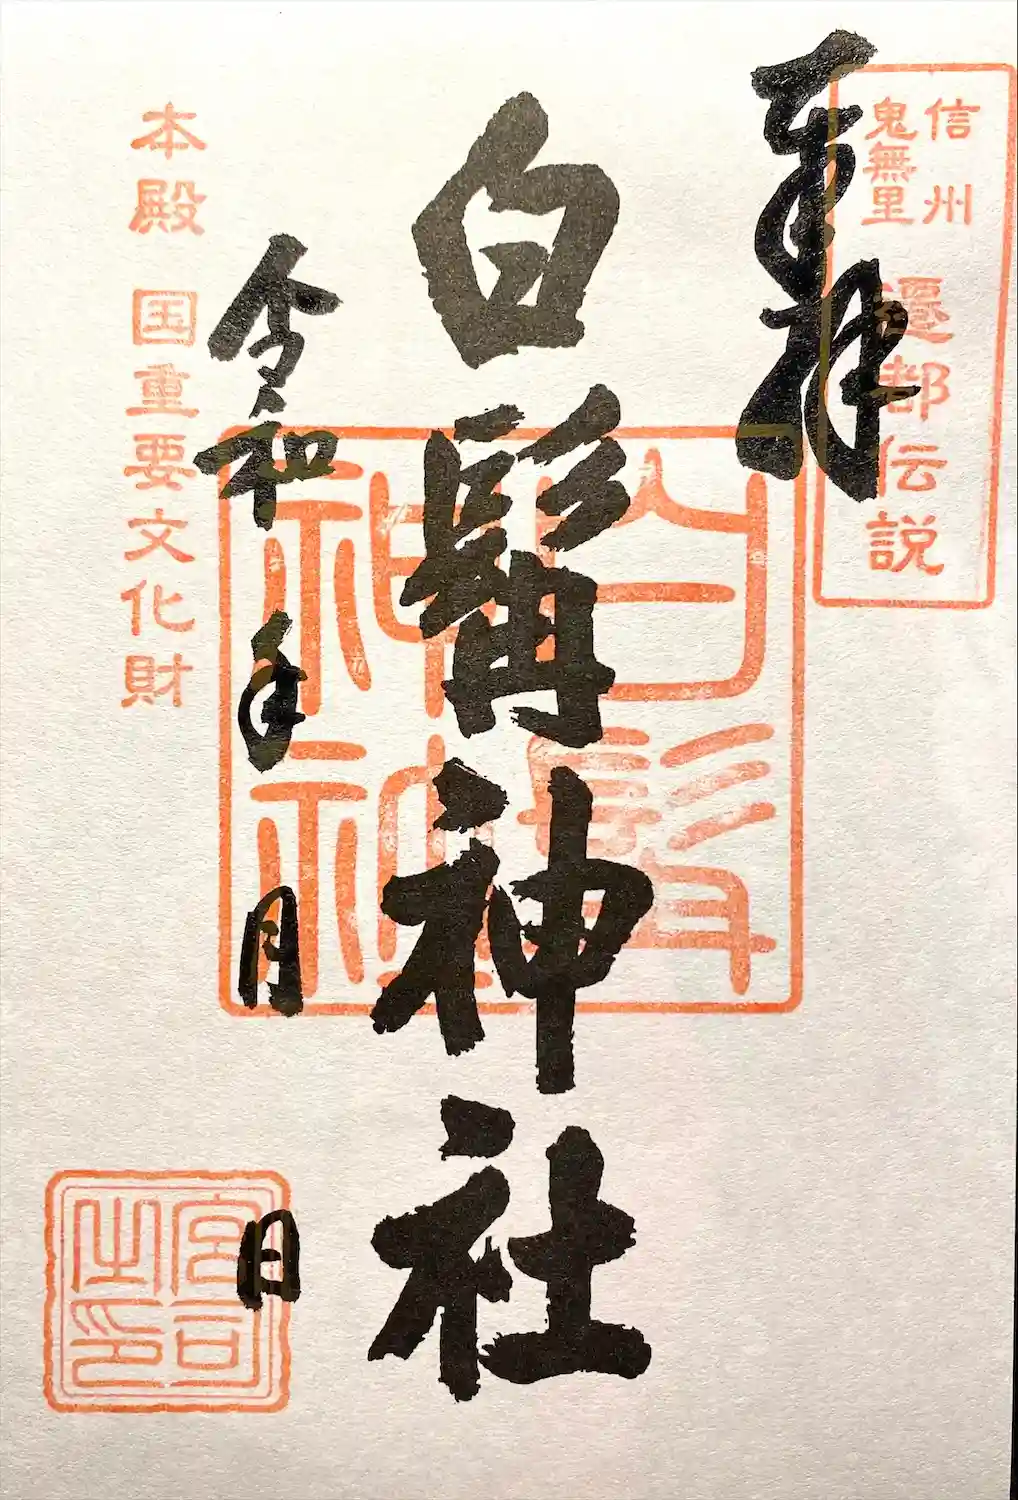 奉拝
信州
鬼無里
遷都伝説
白髯神社
白髯神社
令和 年 月 日
本殿 国重要文化財
宮司之印